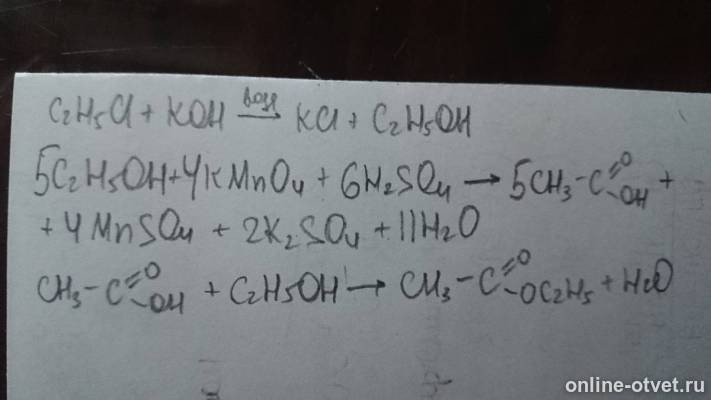 C2H5Cl + KOH —водн→ KCl + C2H5OH
5C2H5OH + 4KMnO4 + 6H2SO4 → 5CH3-C=O-OH +
+ 4MnSO4 + 2K2SO4 + 11H2O
CH3-C=O-OH + C2H5OH → CH3-C=O-OC2H5 + H2O
online-otvet.ru